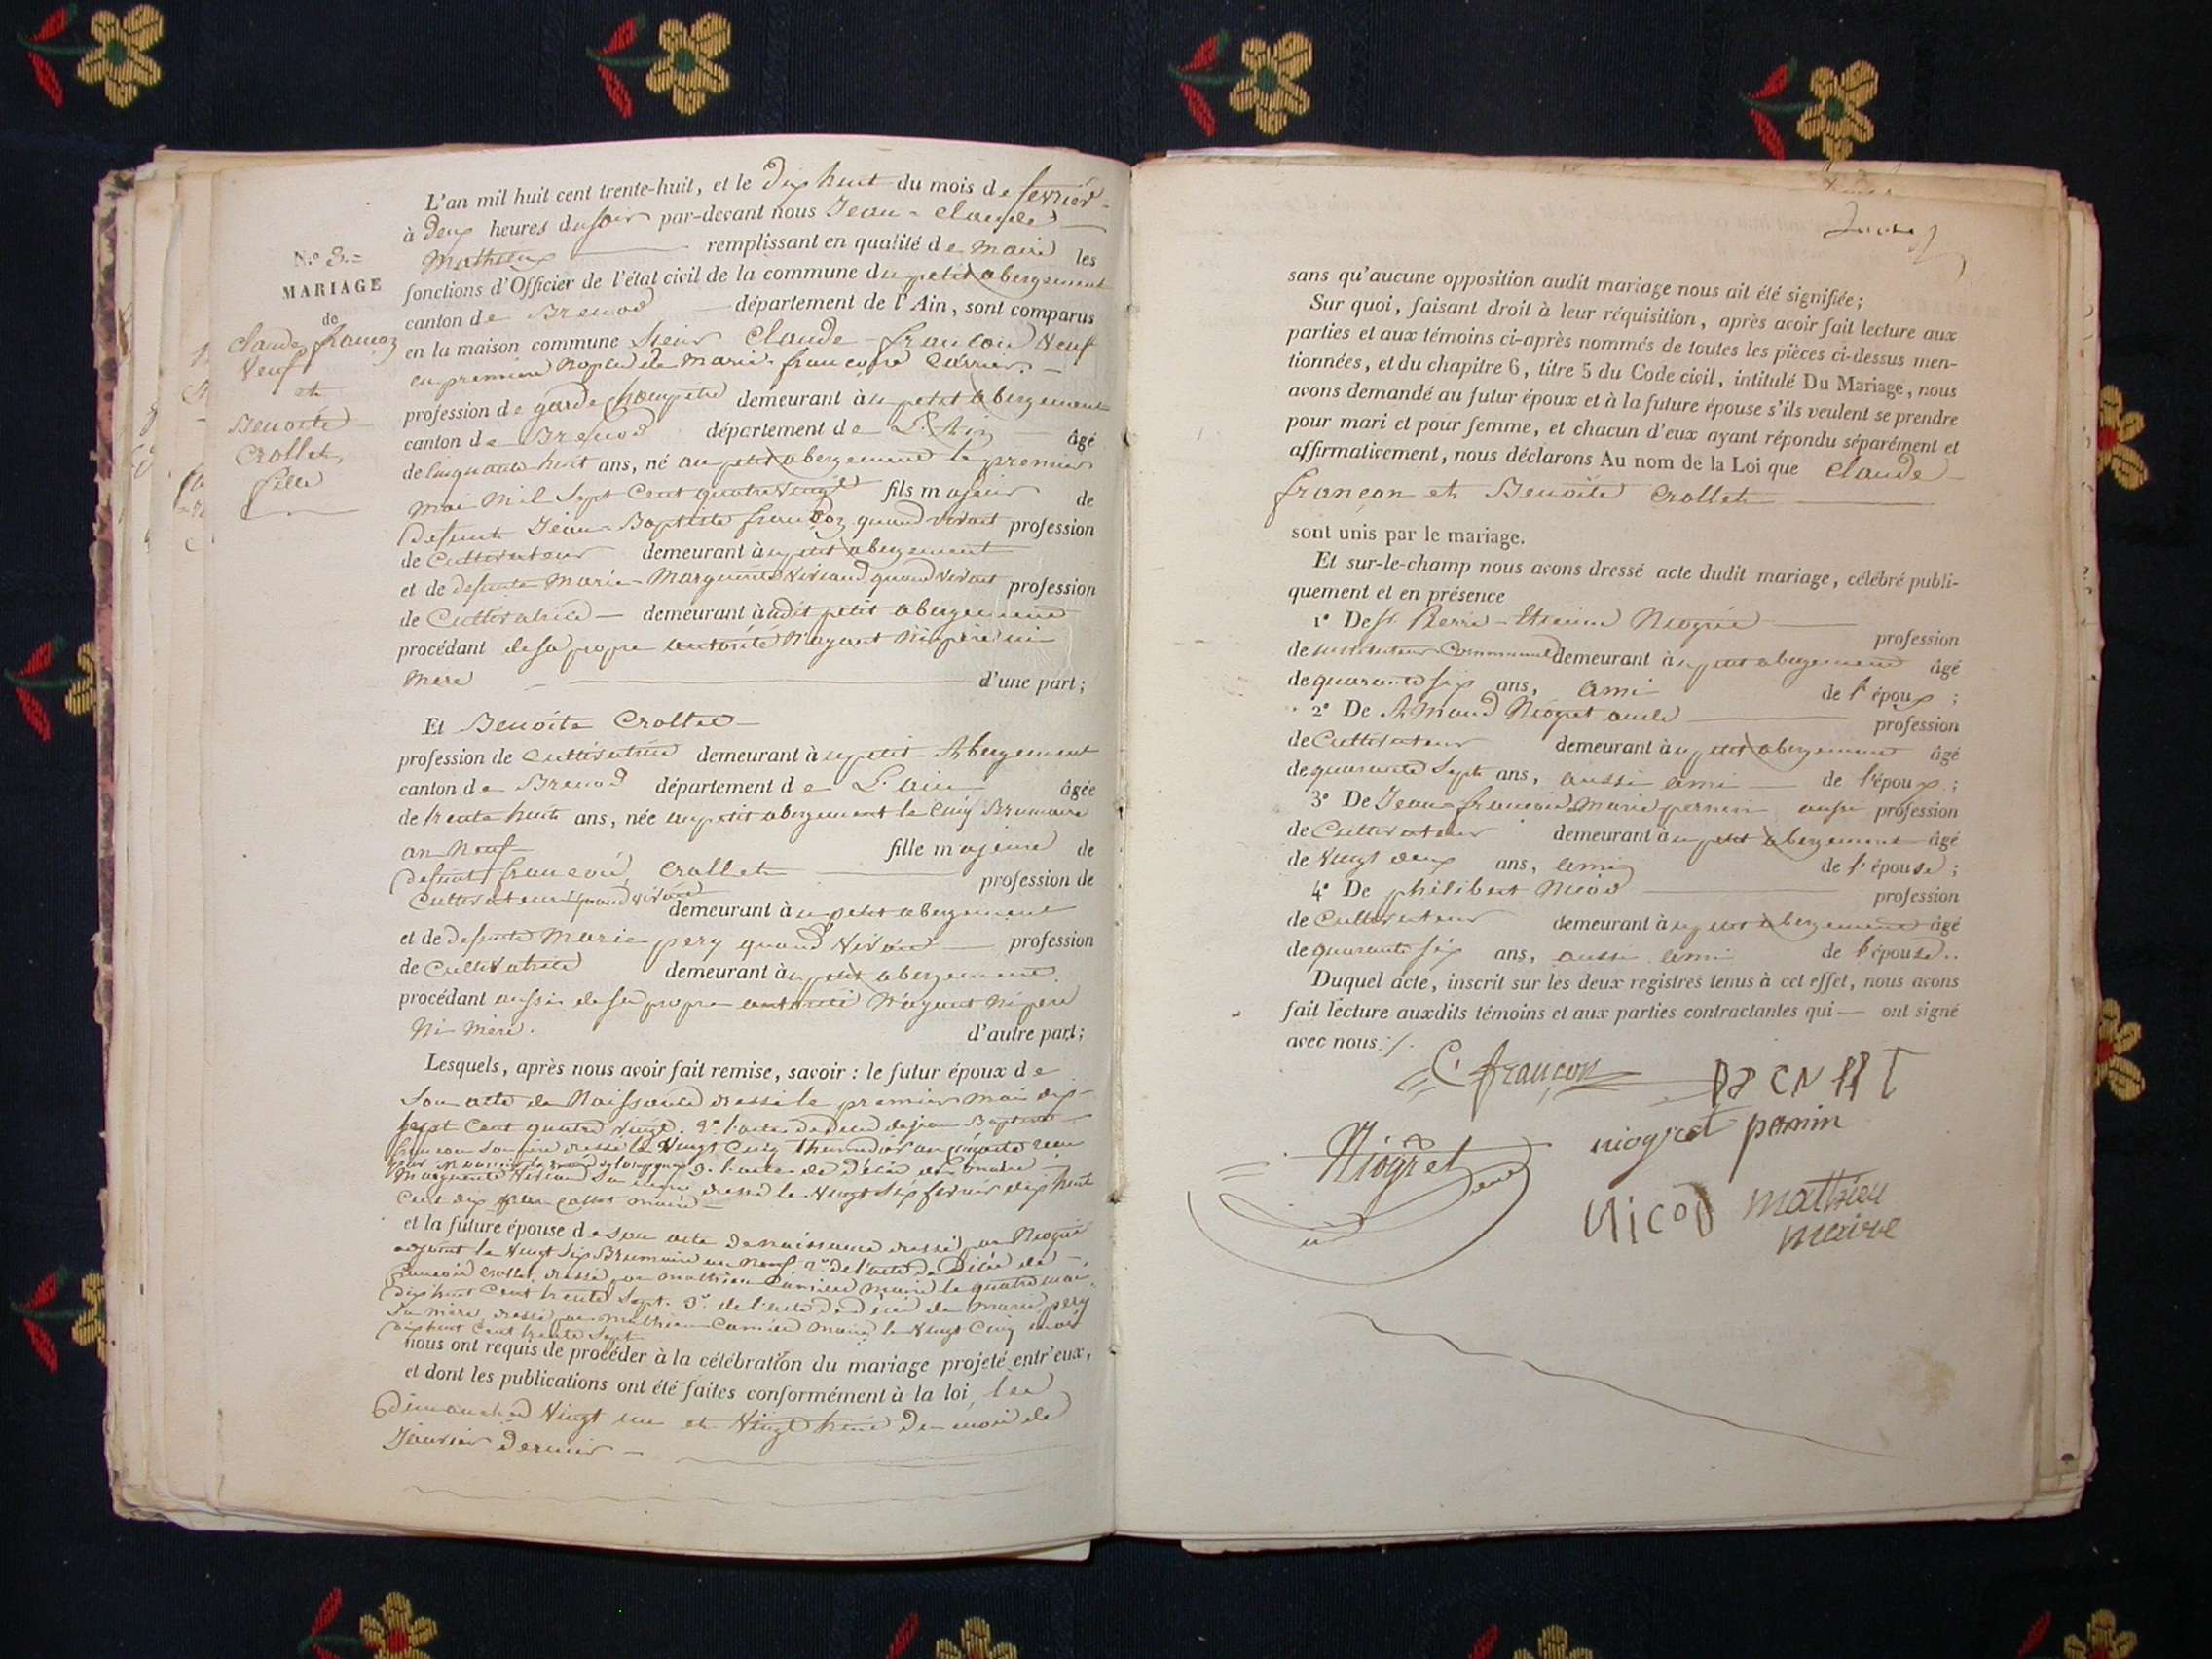 N.o 3.=
MARIAGE
de
Claude françon
Veuf
et
Benoite
Crollet
fille
L'an mil huit cent trente-huit, et le dix huit du mois de fevrier
à deux heures du soir par-devant nous Jean-claude
Mathieu remplissant en qualité de maire les
fonctions d'Officier de l'état civil de la commune du petit abergement
canton de Brenod département de l'Ain, sont comparus
en la maison commune Sieur Claude françon Veuf
en premiere Nople de Marie-françoise Carrier
profession de garde champetre demeurant à u petit abergement
canton de Brenod département de L'Ain âgé
de Cinquante huit ans, né au petit abergement le premier
mai mil Sept Cent quatre vingt fils majeur de
Defunt Jean-Baptiste françon quand vivait profession
de Cultivateur demeurant à u petit abergement
et de defunte Marie-Marguerite Niviand quand vivait profession
de Cultivatrice demeurant à udit petit abergement
procédant de sa propre autorité N'ayant Ni père ni
Mere d'une part;
Et Benoite Crollet
profession de Cultivatrice demeurant à u petit-Abergement
canton de Brenod département de L'ain âgée
de trente huit ans, née au petit abergement le Cinq Brumaire
an Neuf fille majeure de
defunt françois Crollet profession de
Cultivateur quand vivait demeurant à u petit abergement
et de defunte Marie pery quand vivait profession
de Cultivatrice demeurant à u petit abergement
procédant aussi de sa propre autorité N'ayant Ni père
Ni Mère. d'autre part;
Lesquels, après nous avoir fait remise, savoir : le futur époux de
Son acte de Naissance dressé le premier mai dix-
Sept Cent quatre vingt. 2° l'acte de deces de jean Baptiste
françon son père dressé le Vingt Cinq thermidor an
3° l'acte de Décès de
Marguerite Niviand Sa mère dressé le Vingt Six fevrier dix huit
Cent dix par Collet maire
et la future épouse de son acte de naissance dressé par Niogret
adjoint le Vingt Six Brumaire an Neuf 2° de l'acte de Décès de
françois Crollet, dressé par mathieu Carrier Maire le quatre mai
dix huit Cent trente Sept. 3° de l'acte de décès de Marie pery
Sa mère dressé par Mathieu Carrier Maire le Vingt Cinq mars
dix huit Cent trente Sept
nous ont requis de procéder à la célébration du mariage projeté entr'eux,
et dont les publications ont été faites conformément à la loi, les
dimanches Vingt un et Vingt huit du mois de
Janvier dernier
sans qu'aucune opposition audit mariage nous ait été signifiée;
Sur quoi, faisant droit à leur réquisition, après avoir fait lecture aux
parties et aux témoins ci-après nommés de toutes les pièces ci-dessus men-
tionnées, et du chapitre 6, titre 5 du Code civil, intitulé Du Mariage, nous
avons demandé au futur époux et à la future épouse s'ils veulent se prendre
pour mari et pour femme, et chacun d'eux ayant répondu séparément et
affirmativement, nous déclarons Au nom de la Loi que Claude
françon et Benoite Crollet
sont unis par le mariage.
Et sur-le-champ nous avons dressé acte dudit mariage, célébré publi-
quement et en présence
1° De Sr. Pierre-Etienne Niogret profession
de instituteur Communal demeurant à u petit abergement âgé
de quarante six ans, ami de l'époux ;
2° De Armand Niogret profession
de Cultivateur demeurant à u petit abergement âgé
de quarante Sept ans, aussi ami de l'époux ;
3° De Jean françois Marie pernin aussi profession
de Cultivateur demeurant à u petit abergement âgé
de Vingt deux ans, ami de l'épouse ;
4° De philibert Nicod profession
de Cultivateur demeurant à u petit abergement âgé
de quarante six ans, aussi ami de l'épouse..
Duquel acte, inscrit sur les deux registres tenus à cet effet, nous avons
fait lecture auxdits témoins et aux parties contractantes qui ont signé
avec nous ./.
C françon
Niogret
niogret pernin
Nicod
mathieu
maire